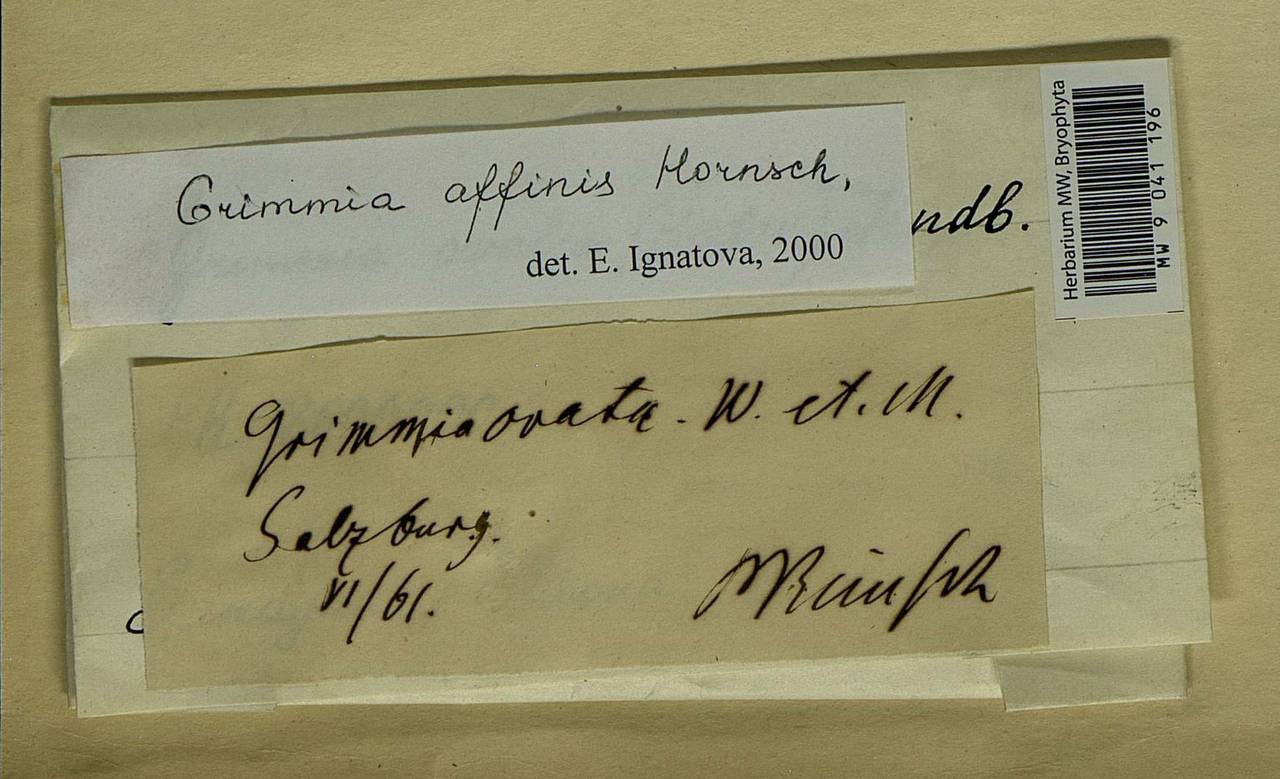 Grimmia affinis Hornsch,
det. E. Ignatova, 2000
ndb.
Herbarium MW, Bryophyta
MW 9 041 196
Grimmia ovata. W. et. M.
Salzburg.
VI/61.